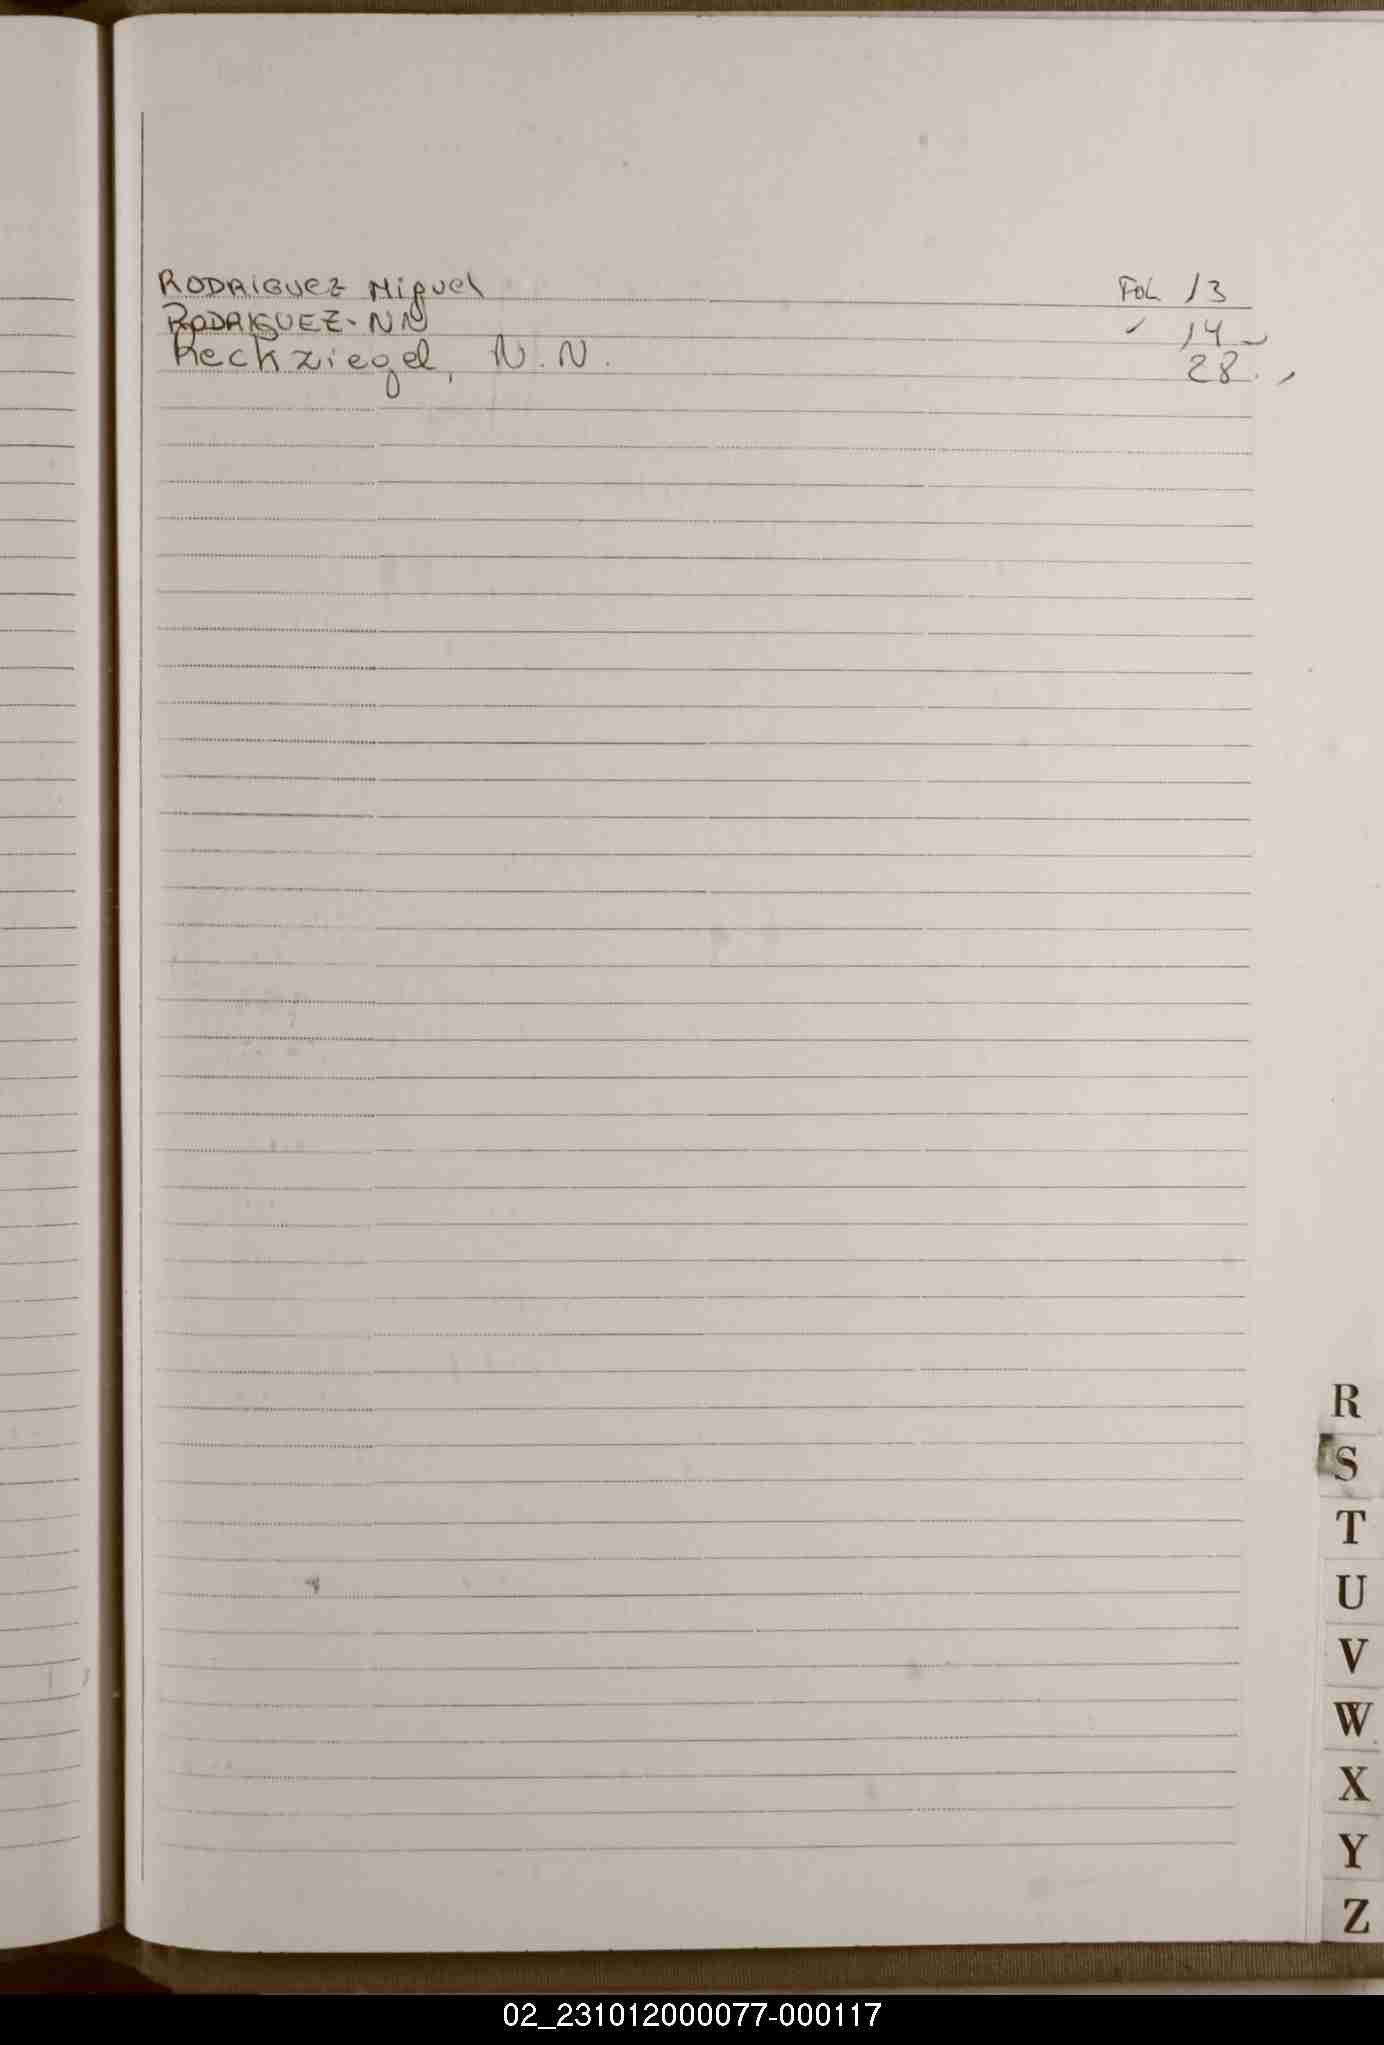 RODRIGUEZ Miguel FOL 13
RODRIGUEZ-NN " 14
Reckziegel, N.N. 28
R
S
T
U
V
W
X
Y
Z
02_231012000077-000117